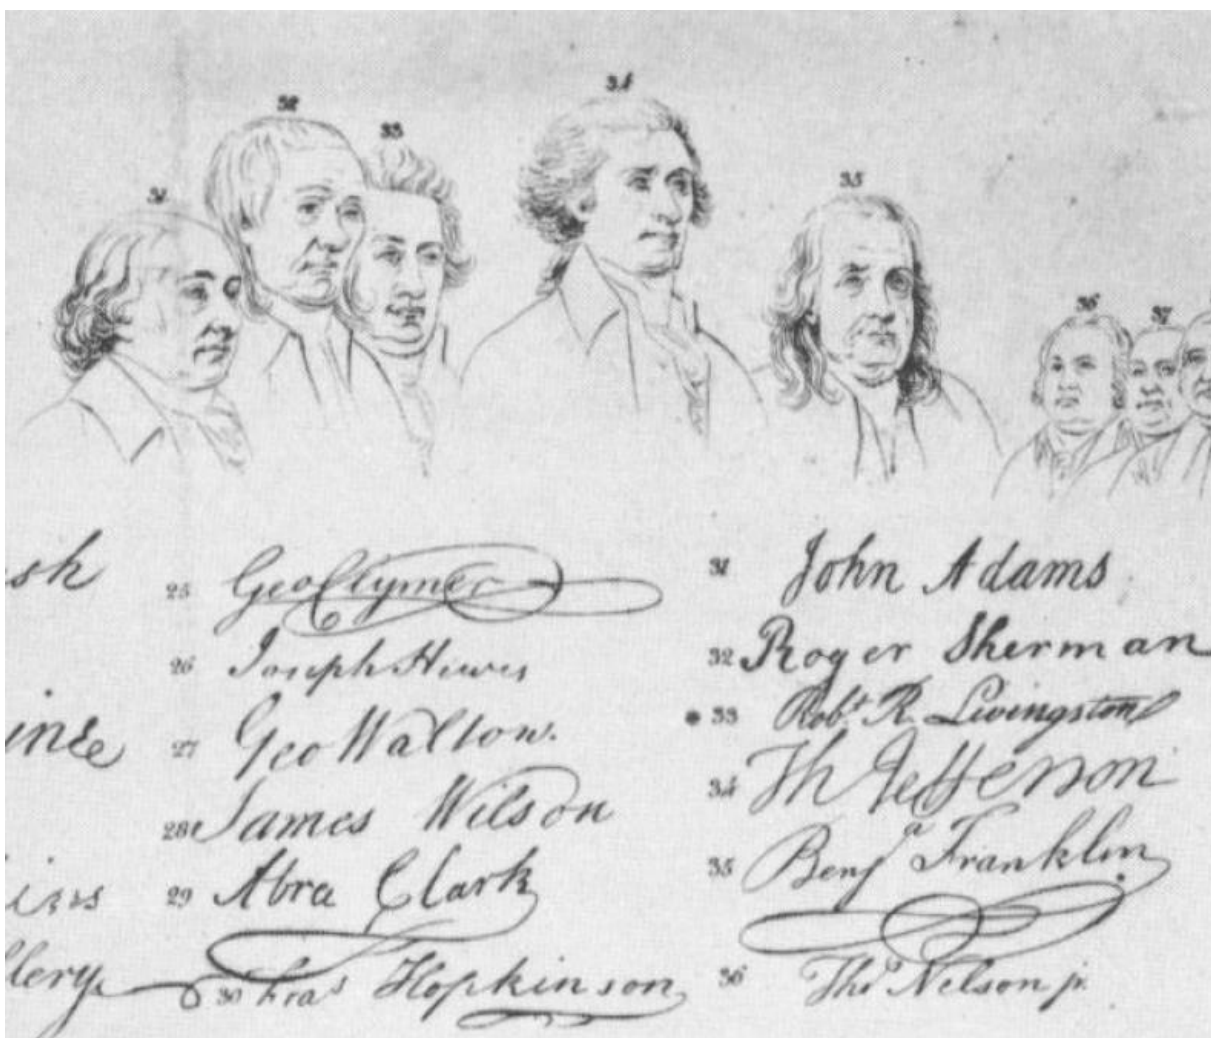 34
32
33
31
35
36
37
sh
25 Geo Clymer
26 Joseph Hewes
27 Geo Walton.
28 James Wilson
29 Abra Clark
30 Fras Hopkinson
llery
31 John Adams
32 Roger Sherman
33 Robt R. Livingston
34 Th Jefferson
35 Benja Franklin
36 Thos Nelson jr.